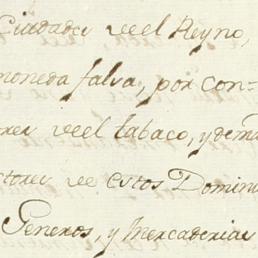 Ciudades del Reyno,
moneda falsa, por con=
res del tabaco, y demas
ctores de estos Domini
Generos, y Mercaderias